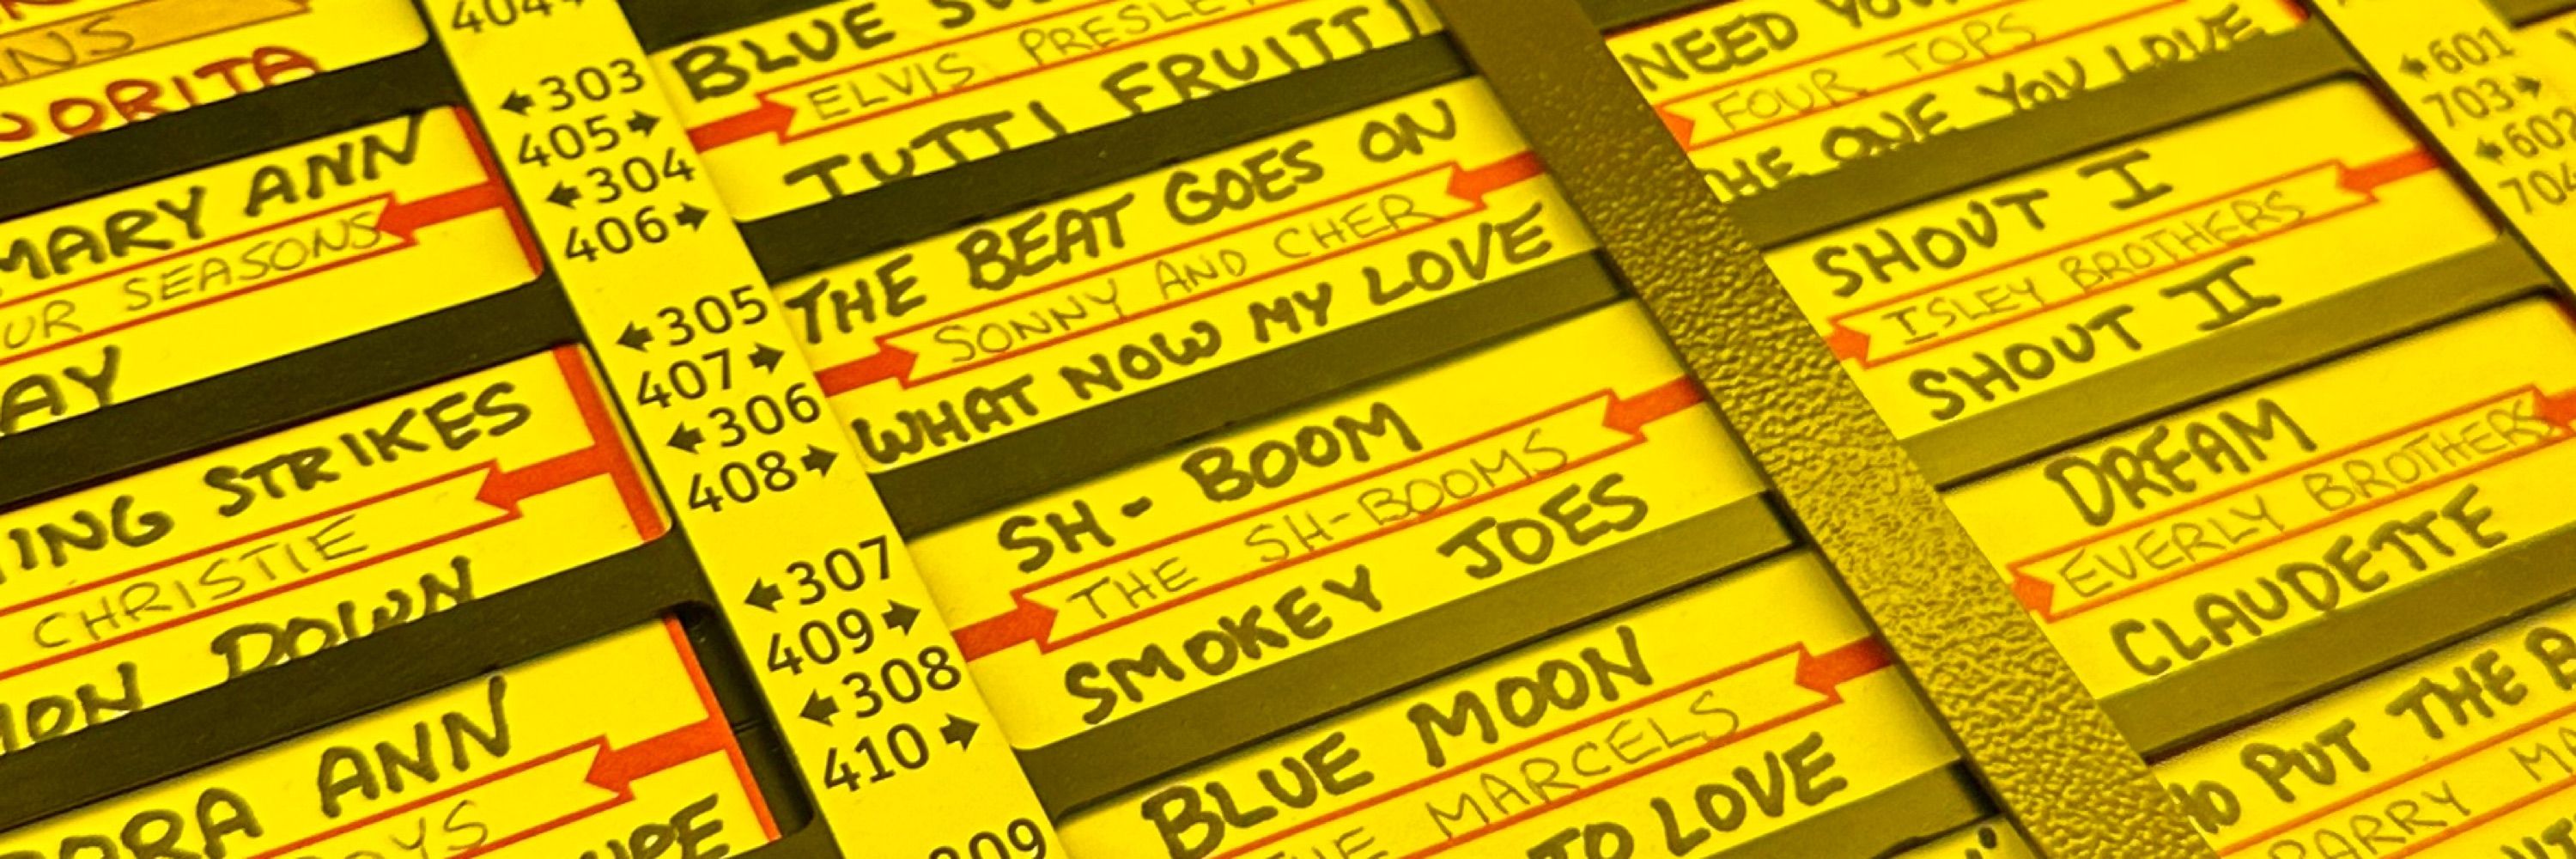 MARY ANN
SEASONS
AY
STRIKES
CHRISTIE
DOWN
ANN
404
303
405
304
406
305
407
306
408
307
409
308
410
BLUE
ELVIS PRESLEY
TUTTI FRUITTI
THE BEAT GOES ON
SONNY AND CHER
WHAT NOW MY LOVE
SH-BOOM
THE SH-BOOMS
SMOKEY JOES
BLUE MOON
MARCELS
TO LOVE
NEED
FOUR TOPS
THE ONE YOU LOVE
SHOUT I
ISLEY BROTHERS
SHOUT II
DREAM
EVERLY BROTHERS
CLAUDETTE
PUT THE
BARRY
601
703
602
704